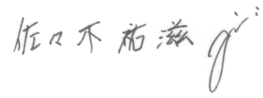 佐々木祐滋